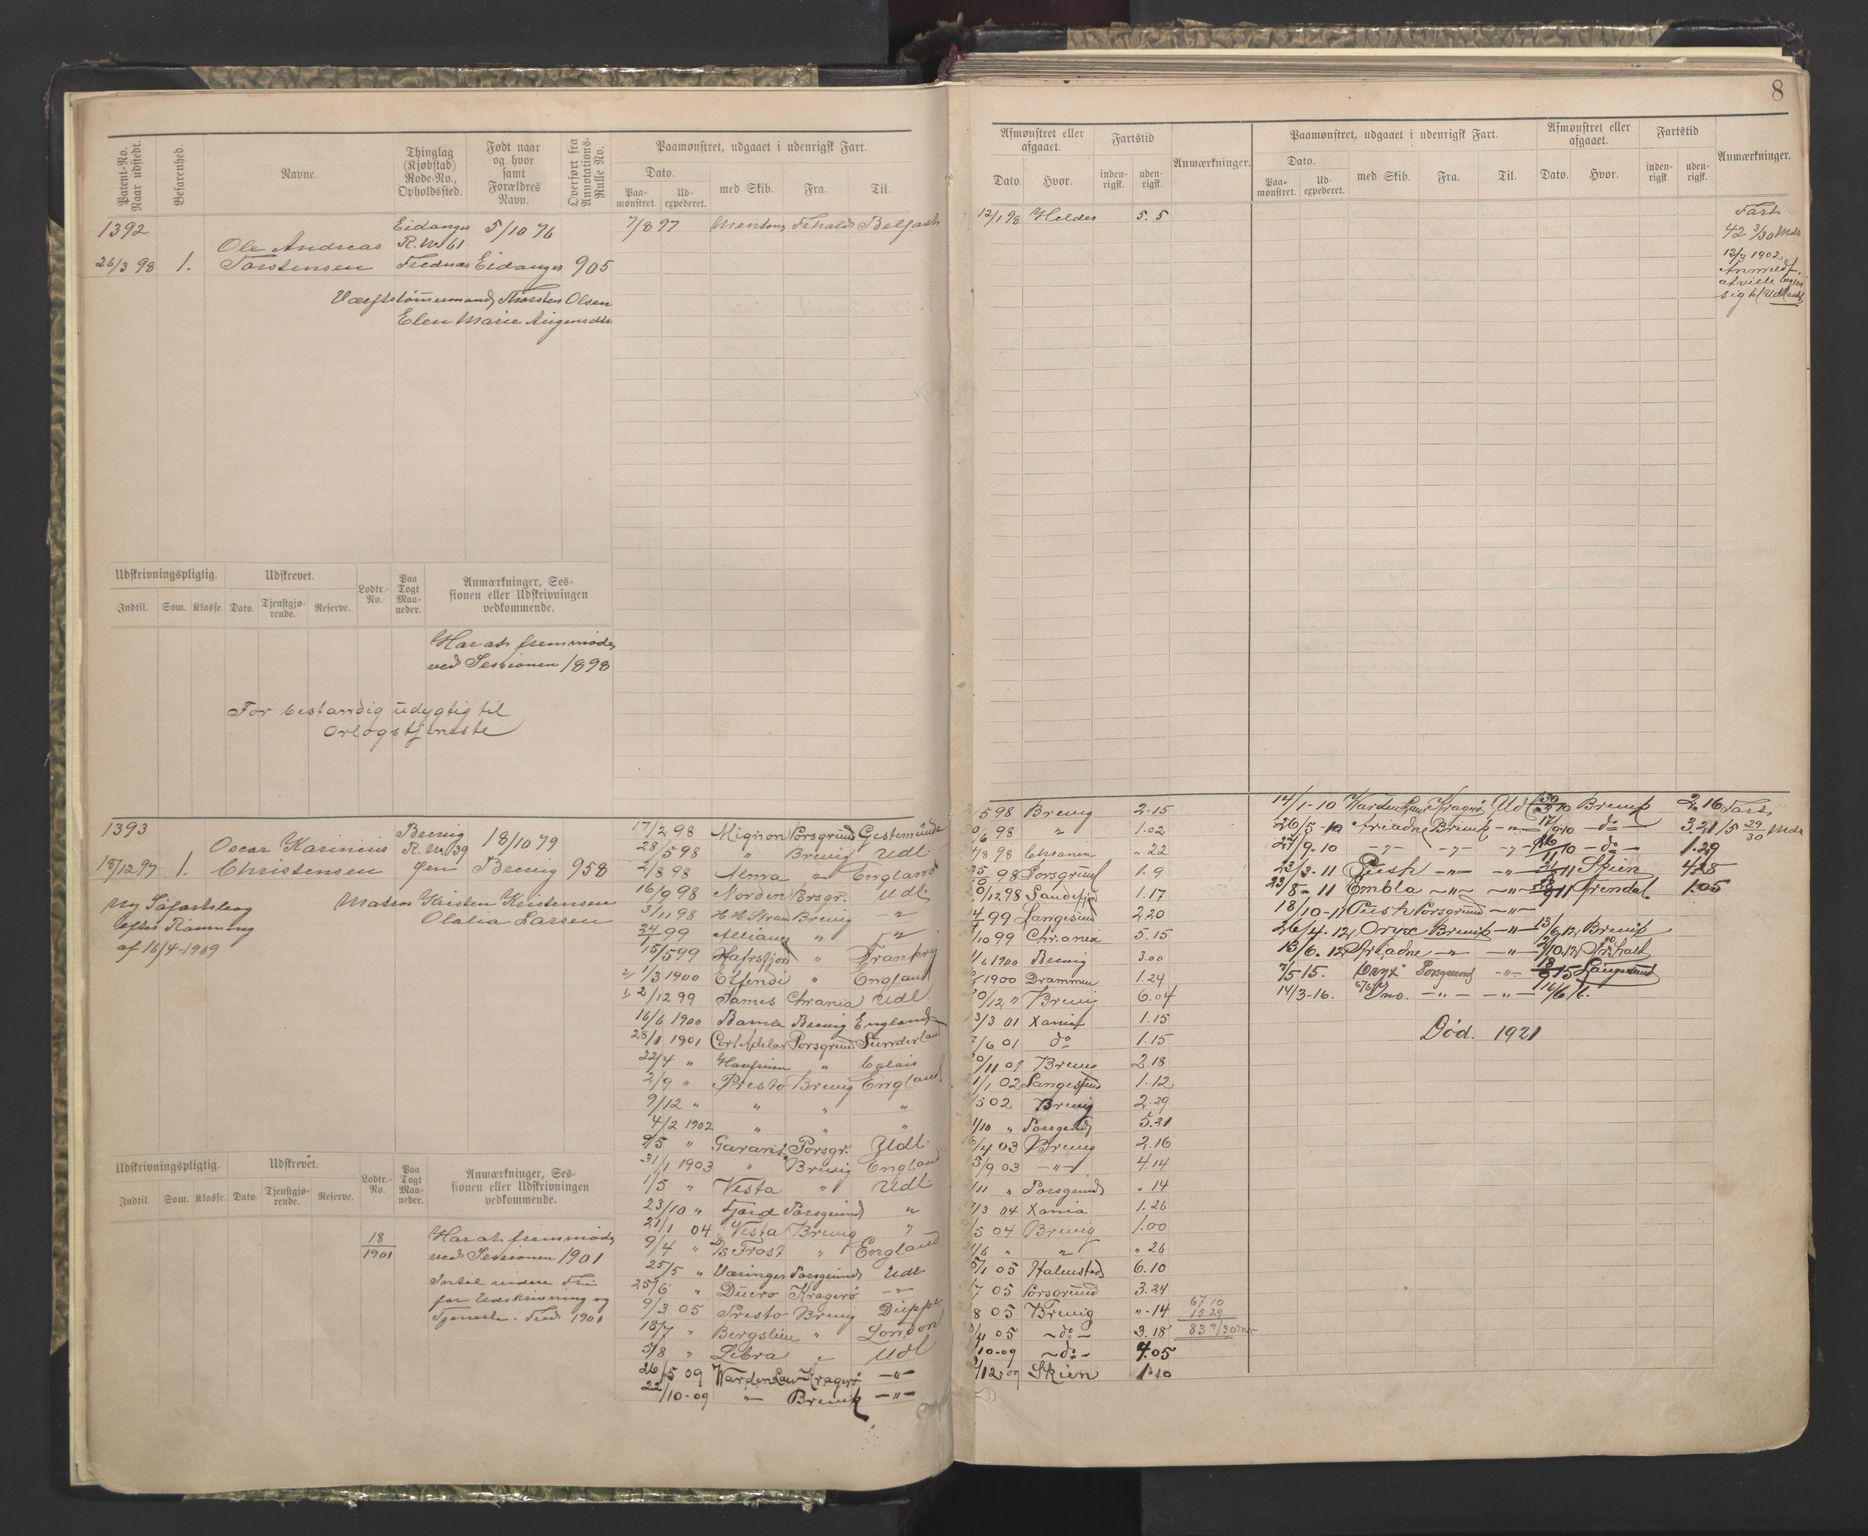 8
Patent-No. Naar udstedt.
Befarenhed.
Navne.
Thinglag (Kjøbstad) Rode-No., Opholdssted.
Født naar og hvor samt Forældres Navn.
Overført fra Annotations-Rulle No.
Paamønstret, udgaaet i udenrigsk Fart.
Dato.
Paa-mønstret.
Ud-expederet.
med Skib.
Fra:
Til.
1392
26/3 98
1.
Ole Andreas
Torstensen
Eidanger
R. No 61
Frednæs
5/10 76
Eidanger
905
Værftstømmermand Thorsten Olsen
Elen Marie
7/8 97 Belfast
Udskrivningspligtig.
Udskrevet.
Lodtr.-No.
Paa Togt Maa-neder.
Anmærkninger, Ses-sionen eller Udskrivningen vedkommende.
Indtil. Som. Klasse. Dato. Tjenstgjø-rende. Reserve.
Har at fremmøde
ved Sessionen 1898
For bestandig udygtig til
Orlogstjeneste
1393
18/12 97
1.
Oscar Karinius
Christensen
Brevig
R. No 39
Gjen
18/10 79
Brevig
958
Matros Kristen Kristensen
Olalia Larsen
Ny Søfartsbog
efter Ramning
af 16/4-1909
Udskrivningspligtig.
Udskrevet.
Lodtr.-No.
Paa Togt Maa-neder.
Anmærkninger, Ses-sionen eller Udskrivningen vedkommende.
Indtil. Som. Klasse. Dato. Tjenstgjø-rende. Reserve.
18
1901
Har at fremmøde
ved Sessionen 1901
Indtil videre Fri
for Udskrivning og
Tjeneste i Fred 1901
17/2 98 Mignon Porsgrund Gestemünde
28/5 98 " Brevig Udl.
2/8 98 Alma " England
16/9 98 Norden Porsgr. Udl.
3/11 98 Brevig -"-
24/ 99 Alliance " "
15/5 99 Hafrsfjord "
1/3 1900 " England
2/12 99 James Chrania Udl.
16/6 1900 Bamle Brevig England
28/1 1901 Cort Adelar Porsgrund Sunderland
22/4 " Havfruen " Calais
2/9 " Presto Brevig England
9/12 " " " "
4/2 1902 " " "
9/5 " Garant Porsgr. Udl.
31/1 1903 " Brevig England
1/5 " Vesta " Udl
23/10 " Fjord Porsgrund "
21/1 04 Vesta Brevig "
9/4 " D/S Frost " England
25/5 " Væringer Porsgrund Udl
25/6 " Duero Kragerø -"-
9/3 05 Presto Brevig Dieppe
18/7 " Bergslien " London
5/8 " Libra " Udl
26/5 09 Varden Kragerø -"-
22/10-09 " Brevik -"-
Afmønstret eller afgaaet.
Fartstid
Anmærkninger.
Dato. Hvor. inden-rigsk. uden-rigsk.
Paamønstret, udgaaet i udenrigsk Fart.
Dato.
Paa-mønstret. Ud-expederet. med Skib. Fra. Til.
Afmønstret eller afgaaet.
Dato. Hvor.
Fartstid
inden-rigsk. uden-rigsk.
Anmærkninger.
12/1 98 Helder 5. 5
Fart
42 3/30 Mdr
12/3 1902
Anmeldt
at ville
sig til Udlandet
5 98 Brevig 2.15
/6 98 " 1.02
/8 98 Chrania " 22
98 Porsgrund 1.9
/12 98 Sandefjord 1.17
99 Langesund 2.20
/10 99 Chrania 5.15
/6 1900 Brevig 3.00
1900 Drammen 1.24
/12 " Brevig 6.04
3/3 01 Xania 1.15
/6 01 do 1.15
/11 01 Brevig 2.18
/1 02 Langesund 1.12
/5 02 Brevig 2.29
/10 " Porsgrund 5.21
/4 03 Brevig 2.16
5/9 03 -"- 4.14
/11 " Porsgrund " 14
/3 04 Xania 1.26
/5 04 Brevig 1.00
/6 " " " 26
/1 05 Halmstad 6.10
/7 05 Porsgrund 3.24
/8 05 Brevig "-14
05 -do- 3.18
/10-09 -do- 4.05
/12-09 Skien 1.10
67.10
15 29
83 9/30 Mdr
14/1-10 Varden Kragerø Udl 10 Brevik 2.16
26/5-10 Ariadne Brevik -"- 10 -do- 3.21
/9.10 -"- -"- -"- 10 -do- 1.29
/3-11 Pusk -"- -"- 11 Skien
23/8-11 Embla -"- -"- 11 Arendal 1.05
18/10-11 Pusk Porsgrund -"-
26/4.12 Oryx Brevik -"- 13/6.12 Brevik
13/6.12 Ariadne -"- -"- /10.12
/5 15. Oryx Porsgrund -"- 18/9 15 Langesund
14/3-16. Uno. -"- -"- /6 16.
Fart
/5 29/30 Mdr
Død. 1921